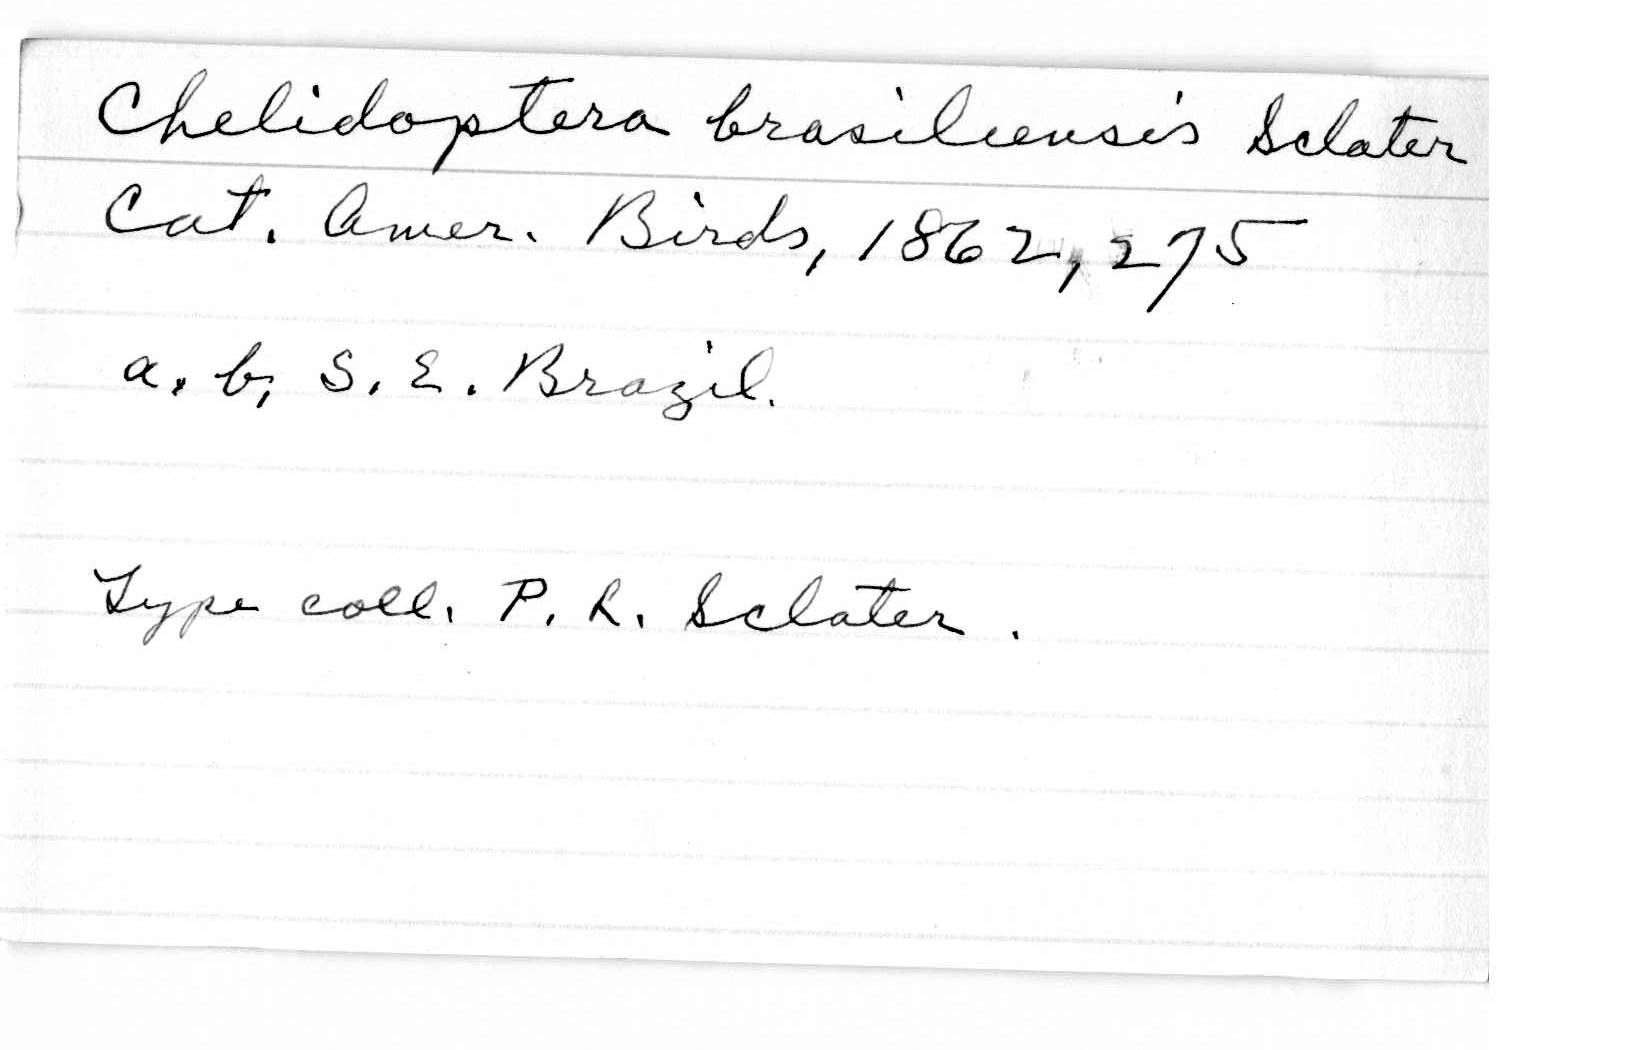 Chelidoptera brasiliensis Sclater
Cat. Amer. Birds, 1862, 275
a. b, S. E. Brazil.
Type coll. P. L. Sclater.